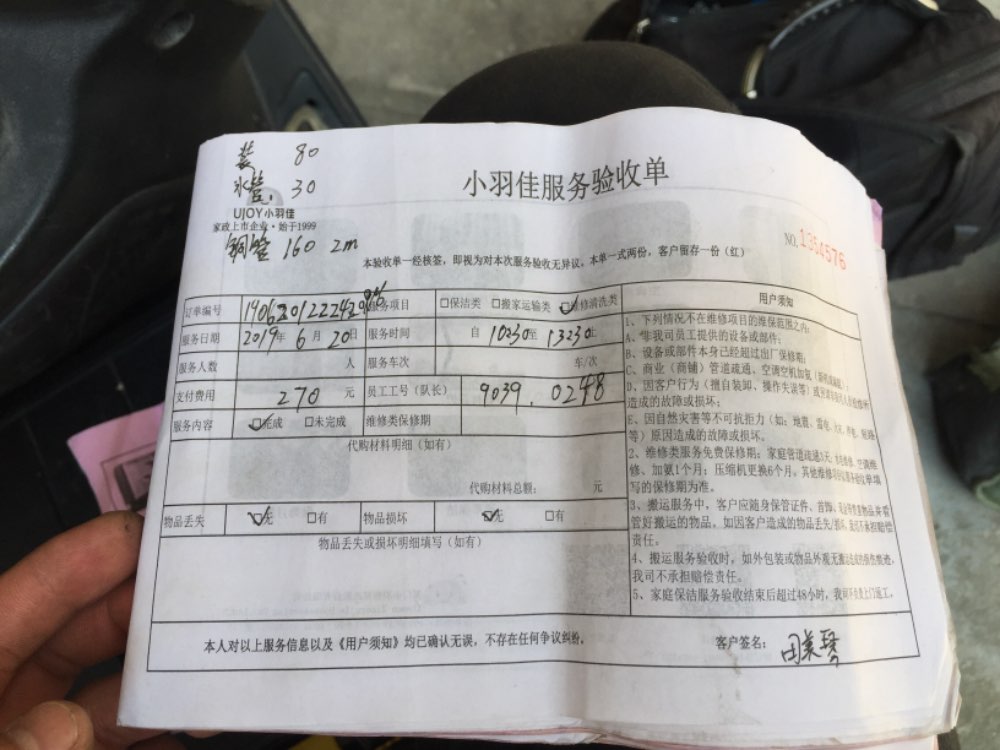 装 80
水管. 30
小羽佳服务验收单
UJOY小羽佳
家政上市企业·始于1999
铜管 160 2m
NO. 1364576
本验收单一经核签，即视为对本次服务验收无异议，本单一式两份，客户留存一份（红）
订单编号 服务项目 □保洁类 □搬家运输类 ☑维修清洗类
服务日期 2019年 6月 20日 服务时间 自 10:30至 13:30止
服务人数 人 服务车次 车/次
支付费用 270 元 员工工号（队长） 9039. 0248
服务内容 ☑完成 □未完成 维修类保修期
代购材料明细（如有）
代购材料总额： 元
物品丢失 ☑无 □有 物品损坏 ☑无 □有
物品丢失或损坏明细填写（如有）
用户须知
1、下列情况不在维修项目的维保范围之内：
A、非我司员工提供的设备或部件；
B、设备或部件本身已经超过出厂保修期；
C、商业（商铺）管道疏通、空调空机加氨
D、因客户行为（擅自装卸、操作失误等）或
造成的故障或损坏；
E、因自然灾害等不可抗拒力（如：地震、雷电、
等）原因造成的故障或损坏。
2、维修类服务免费保修期：家庭管道疏通3天；
修、加氨1个月；压缩机更换6个月，其他维修项目
写的保修期为准。
3、搬运服务中，客户应随身保管证件、首饰、
管好搬运的物品。如因客户造成的物品丢失/损坏，我司不承担赔偿
责任。
4、搬运服务验收时，如外包装或物品外观无
我司不承担赔偿责任。
5、家庭保洁服务验收结束后超过48小时，我司不负责上门返工。
本人对以上服务信息以及《用户须知》均已确认无误，不存在任何争议纠纷。 客户签名： 田美琴